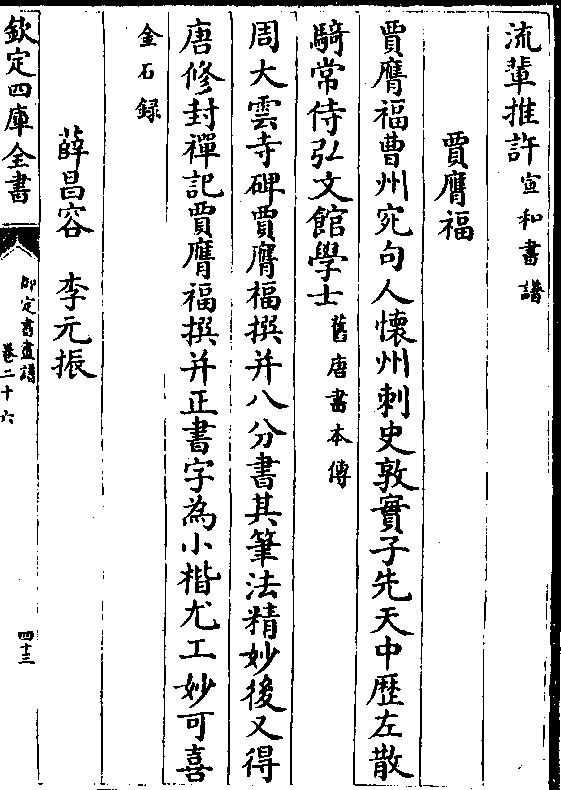 流輩推許宣和書譜
賈膺福
賈膺福曹州寃句人懷州刺史敦實子先天中歷左散
騎常侍弘文館學士舊唐書本傳
周大雲寺碑賈膺福撰并八分書其筆法精妙後又得
唐修封禪記賈膺福撰并正書字為小楷尤工妙可喜
金石録
薛昌容　李元振
欽定四庫全書
御定書畫譜
卷二十六
四十三